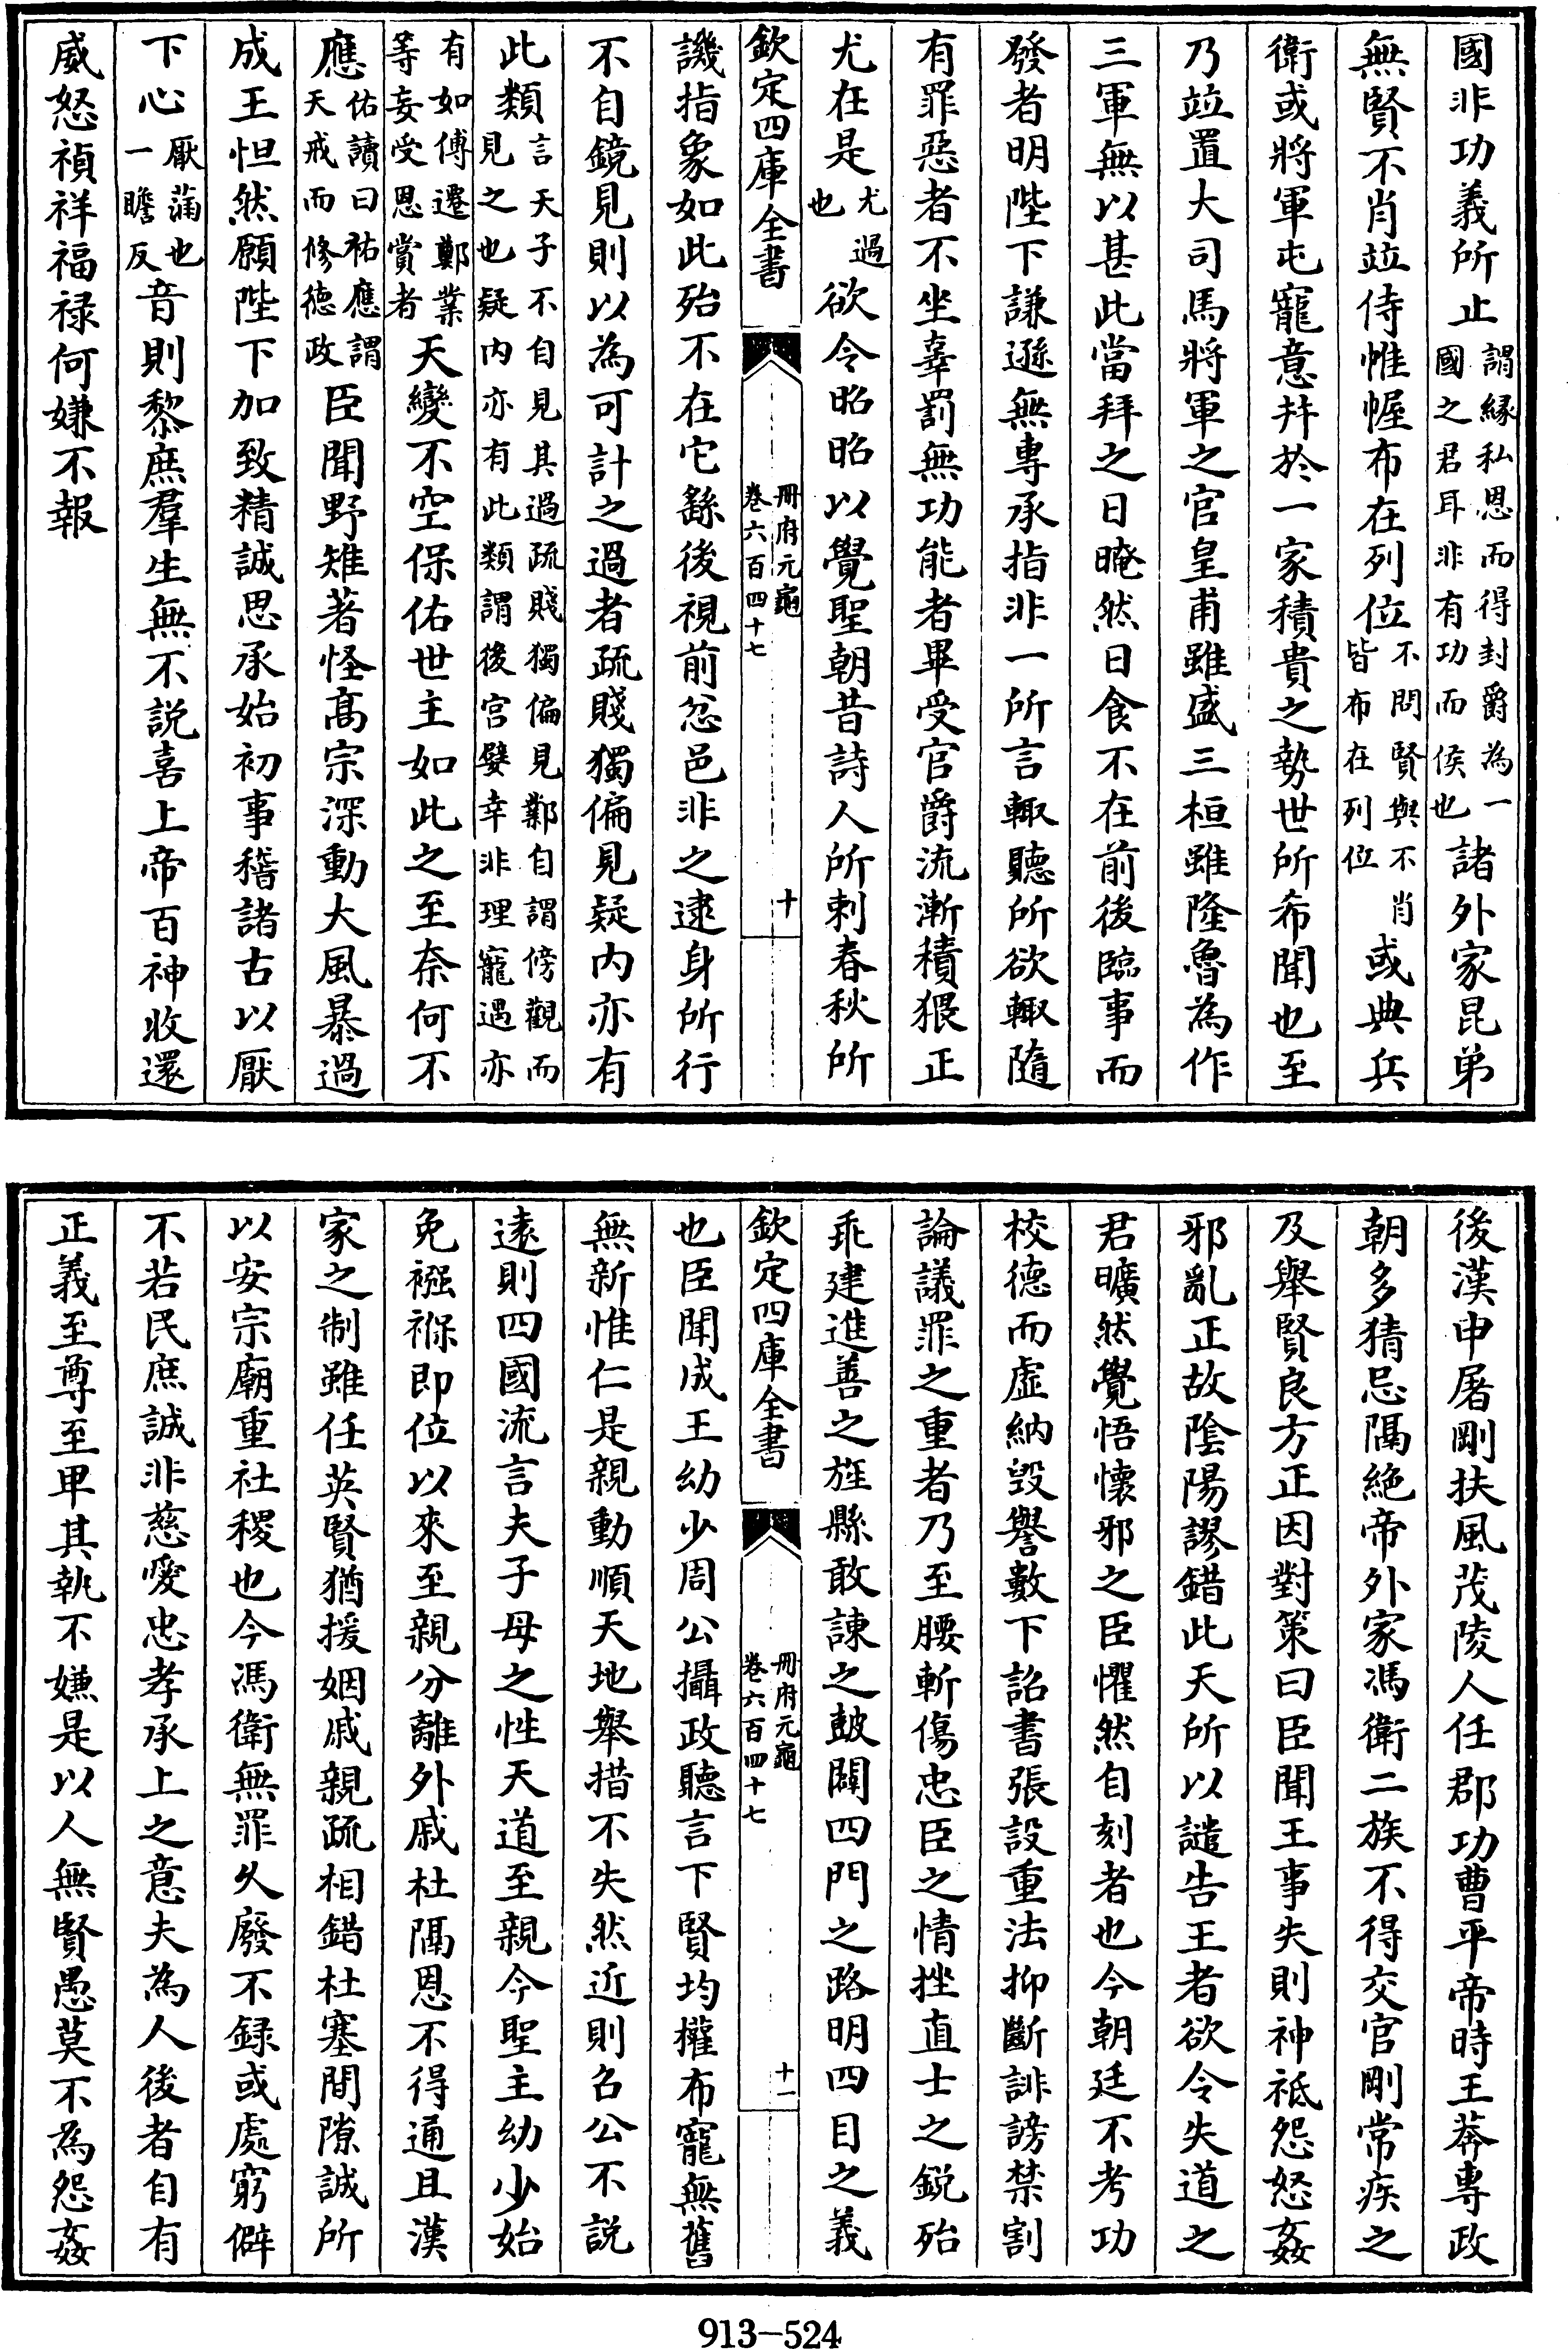 國非功義所止謂縁私恩而得封爵為一國之君耳非有功而侯也諸外家昆弟
無賢不肖竝侍帷幄布在列位不問賢與不肖皆布在列位或典兵
衛或將軍屯寵意并於一家積貴之勢世所希聞也至
乃竝置大司馬將軍之官皇甫雖盛三桓雖隆魯為作
三軍無以甚此當拜之日晻然日食不在前後臨事而
發者明陛下謙遜無專承指非一所言輙聽所欲輙隨
有罪惡者不坐辜罰無功能者畢受官爵流漸積猥正
尤在是尤過也欲令昭昭以覺聖朝昔詩人所刺春秋所
欽定四庫全書 冊府元龜 卷六百四十七 十
譏指象如此殆不在它繇後視前忿邑非之逮身所行
不自鏡見則以為可計之過者疏賤獨偏見疑内亦有
此類言天子不自見其過疏賤獨偏見鄴自謂傍觀而見之也疑内亦有此類謂後宫嬖幸非理寵遇亦
有如傅遷鄭業等妄受恩賞者天變不空保佑世主如此之至奈何不
應佑讀曰祐應謂天戒而修德政臣聞野雉著怪髙宗深動大風暴過
成王怛然願陛下加致精誠思承始初事稽諸古以厭
下心厭滿也一瞻反音則黎庶羣生無不説喜上帝百神收還
威怒禎祥福禄何嫌不報
後漢申屠剛扶風茂陵人任郡功曹平帝時王莽專政
朝多猜忌隔絶帝外家馮衛二族不得交官剛常疾之
及舉賢良方正因對策曰臣聞王事失則神祗怨怒姦
邪亂正故陰陽謬錯此天所以譴告王者欲令失道之
君曠然覺悟懷邪之臣懼然自刻者也今朝廷不考功
校德而虛納毁譽數下詔書張設重法抑斷誹謗禁割
論議罪之重者乃至腰斬傷忠臣之情挫直士之鋭殆
乖建進善之旌縣敢諫之鼓闢四門之路明四目之義
欽定四庫全書 冊府元龜 卷六百四十七 十一
也臣聞成王幼少周公攝政聽言下賢均權布寵無舊
無新惟仁是親動順天地舉措不失然近則召公不説
逺則四國流言夫子母之性天道至親今聖主幼少始
免襁褓即位以來至親分離外戚杜隔恩不得通且漢
家之制雖任英賢猶援姻戚親疏相錯杜塞間隙誠所
以安宗廟重社稷也今馮衛無罪久廢不録或處窮僻
不若民庶誠非慈愛忠孝承上之意夫為人後者自有
正義至尊至卑其埶不嫌是以人無賢愚莫不為怨姦
913－524